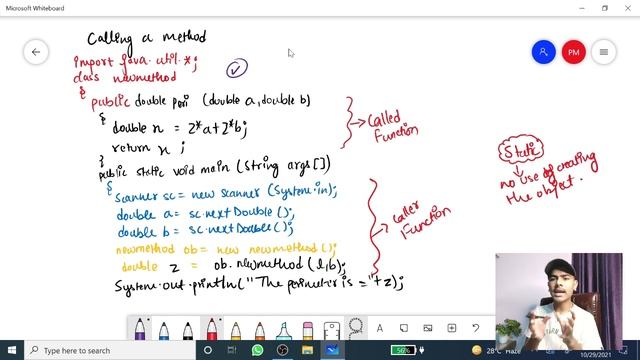 Microsoft Whiteboard
Calling a method
import java.util.*;
class newmethod
{ public double peri (double a, double b)
{
double x = 2*a+2*b;
return x ;
}
public static void main (String args[])
{
Scanner sc = new Scanner (System.in);
double a = sc.nextDouble ();
double b = sc.nextDouble ();
newmethod ob = new newmethod ();
double z = ob.newmethod (l,b);
System.out.println("The perimeter is = "+z);
Called
Function
Caller
Function
Static
no use of creating
the object.
PM
A
Type here to search
56%
28°C Haze
10/29/2021